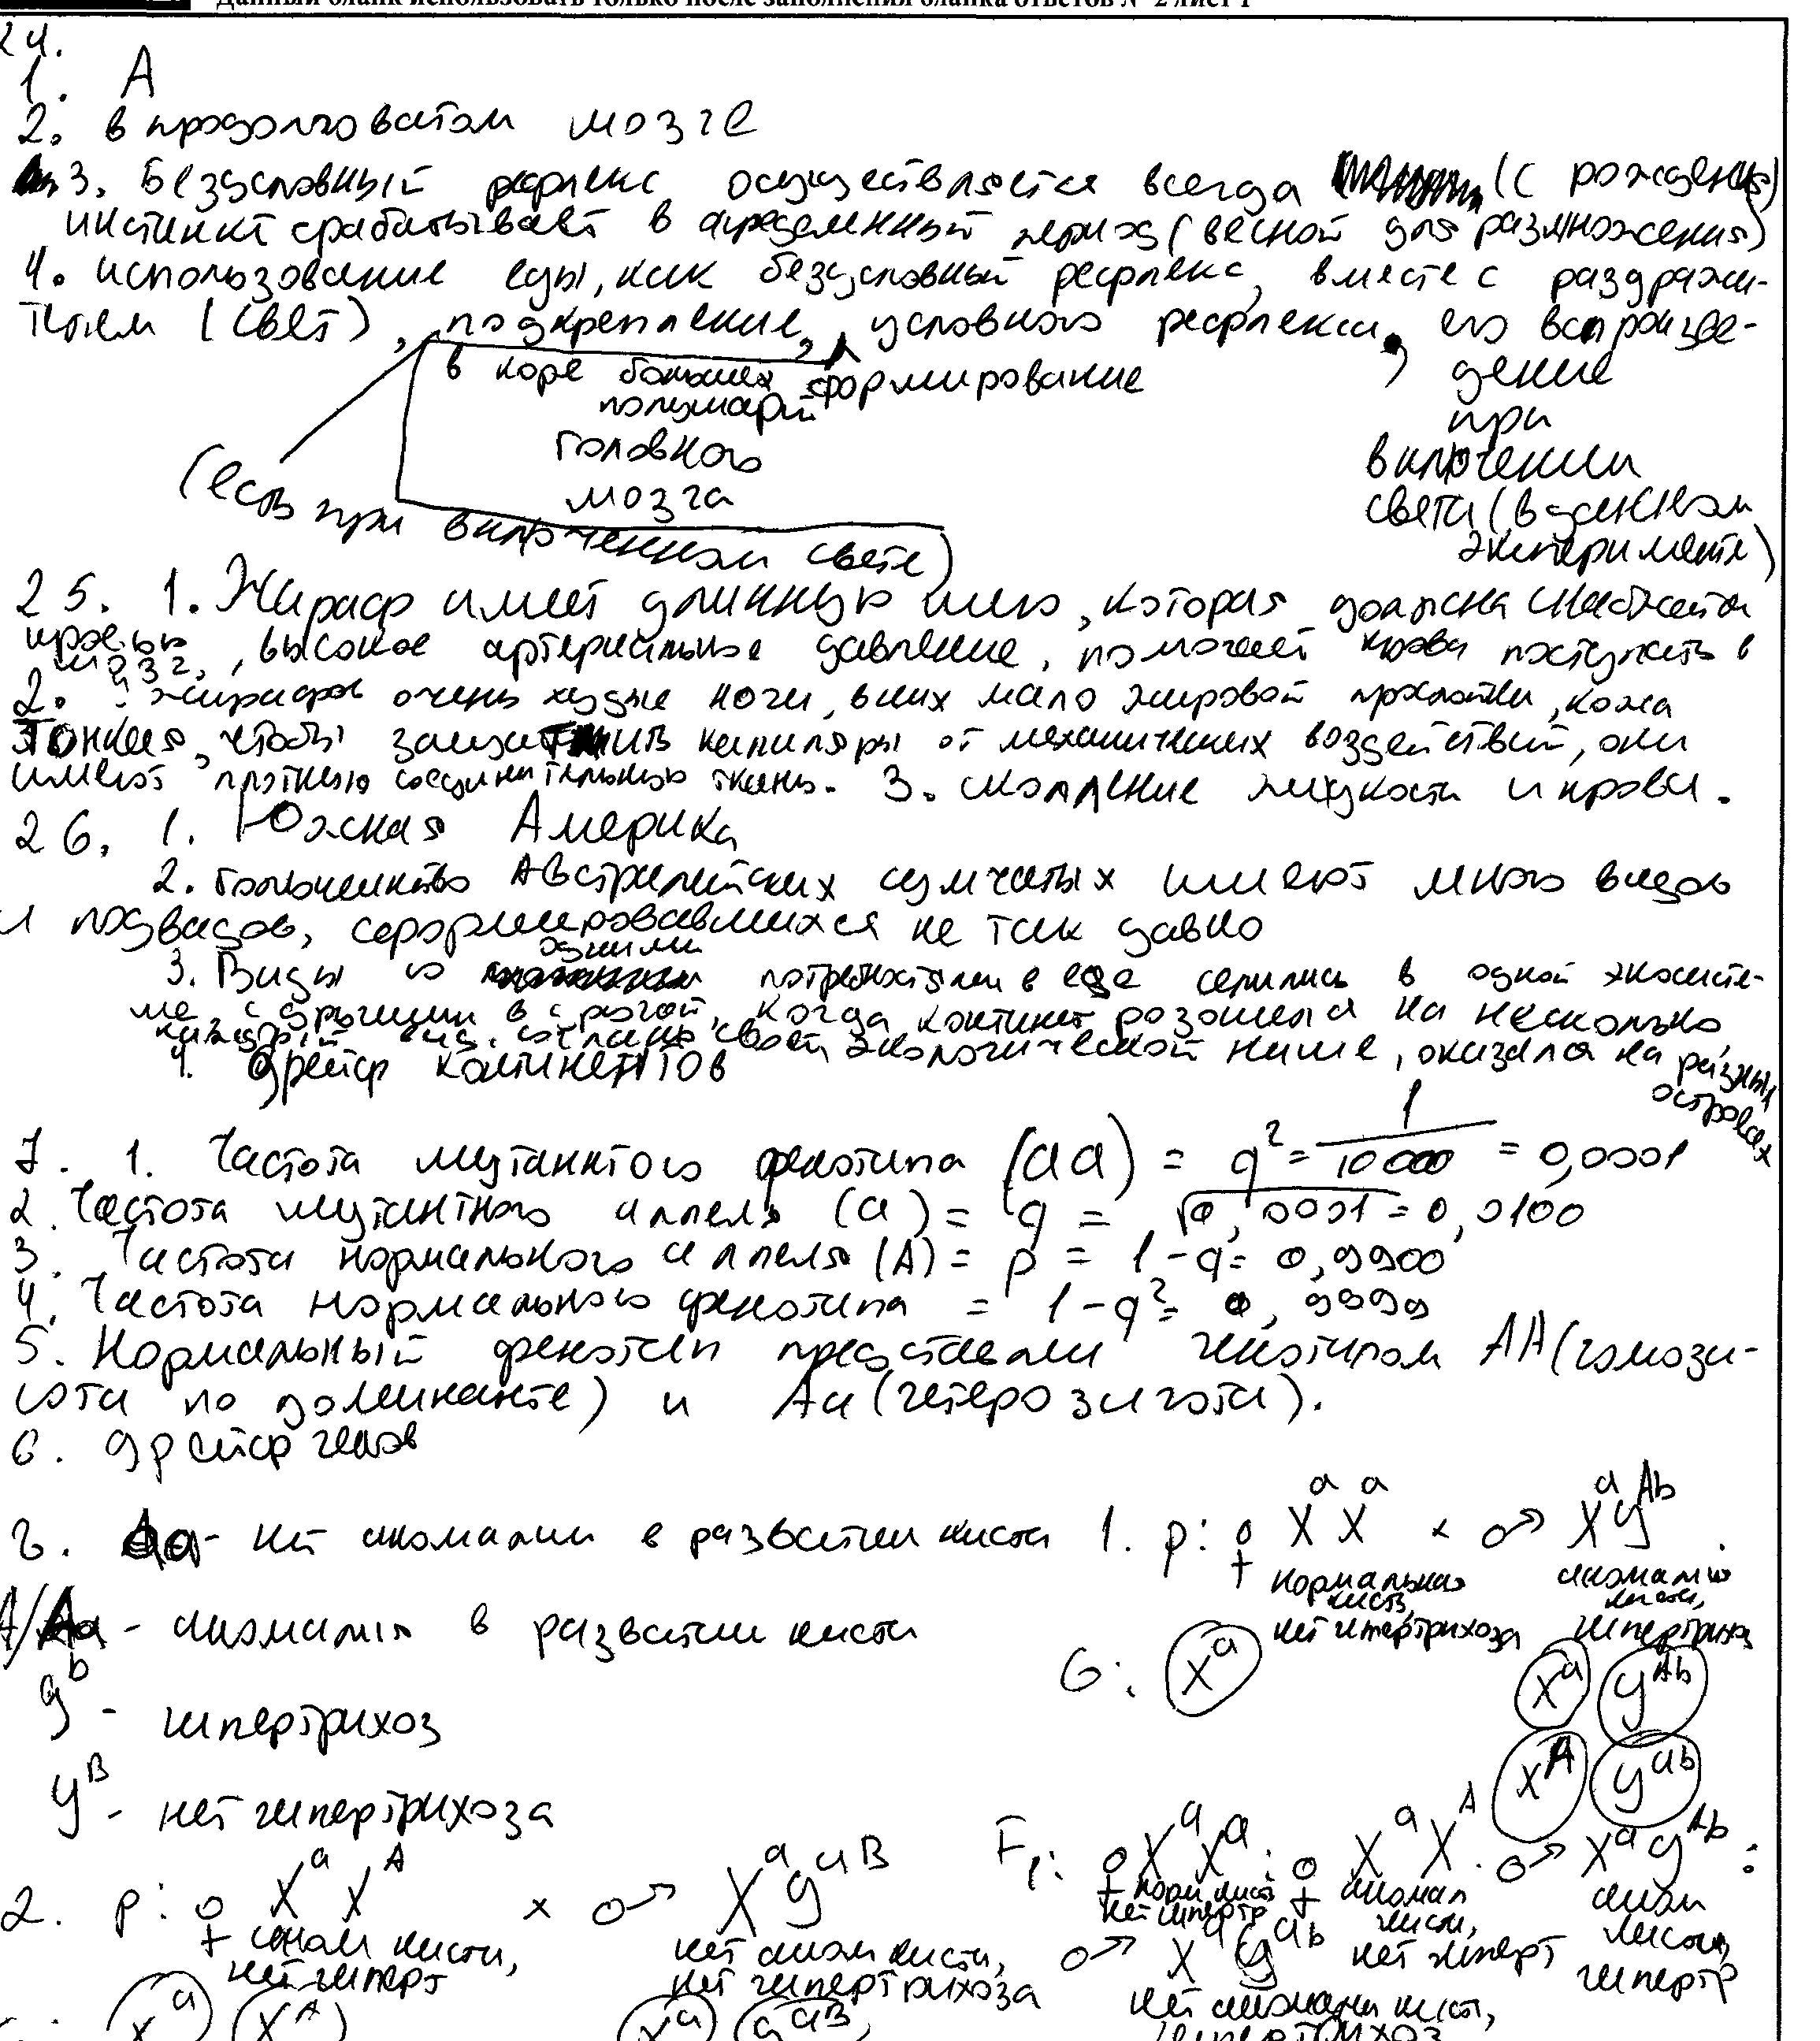 Данный бланк использовать только после заполнения бланка ответов № 2 лист 1
24.
1. А
2. в продолговатом мозге
3. Безусловный рефлекс осуществляется всегда (с рождения)
инстинкт срабатывает в определенный период (весной для размножения)
4. использование еды, как безусловный рефлекс, вместе с раздражи-
телем (свет), подкрепление, условного рефлекса, его воспроизве-
дение
при
включении
света (в данном
эксперименте)
формирование
в коре больших
полушарий
головного
мозга
(есть при включенном свете)
25. 1. Жираф имеет длинную шею, которая должна снабжаться
кровью, высокое артериальное давление, помогает крови поступать в
мозг.
2. жирафов очень худые ноги, в них мало жировой прослойки, кожа
тонкая, чтобы защитить капиляры от механических воздействий, они
имеют плотную соединительную ткань. 3. скопление жидкости и крови.
26. 1. Южная Америка
2. большинство Австралийских сумчатых имеют много видов
и подвидов, сформировавшихся не так давно
3. Виды со одними потребностями в еде селились в одной экосисте-
ме, с другими в другой, когда континент разошелся на несколько
каждый вид, согласно своей экологической нише, оказался на разных
островах
4. дрейф континентов
7. 1. Частота мутантного фенотипа (aa) = q² = 1/10000 = 0,0001
2. Частота мутантного аллеля (a) = q = √0,0001 = 0,0100
3. Частота нормального аллеля (A) = p = 1-q = 0,9900
4. Частота нормального фенотипа = 1-q² = 0,9999
5. Нормальный фенотип представлен генотипом AA (гомози-
гота по доминанте) и Aa (гетерозигота).
6. дрейф генов
8. a - нет аномалии в развитии кисти
A/ - аномалия в развитии кисти
y^b - гипертрихоз
y^B - нет гипертрихоза
1. p: ♀ X^a X^a × ♂ X^a y^Ab
нормальная кисть, нет гипертрихоза
аномалия кисти, гипертрихоз
G: X^a
X^a y^Ab
X^A y^ab
F₁: ♀ X^a X^a : ♀ X^a X^A : ♂ X^a y^Ab :
норм кисть нет гипертр
аномал кисти, нет гиперт
аном кисти, гипертр
♂ X^a y^ab
нет аномалии кисти,
гипертрихоз
2. p: ♀ X^a X^A × ♂ X^a y^aB
аном кисти, нет гиперт
нет аном кисти, нет гипертрихоза
X^a X^A X^a y^aB